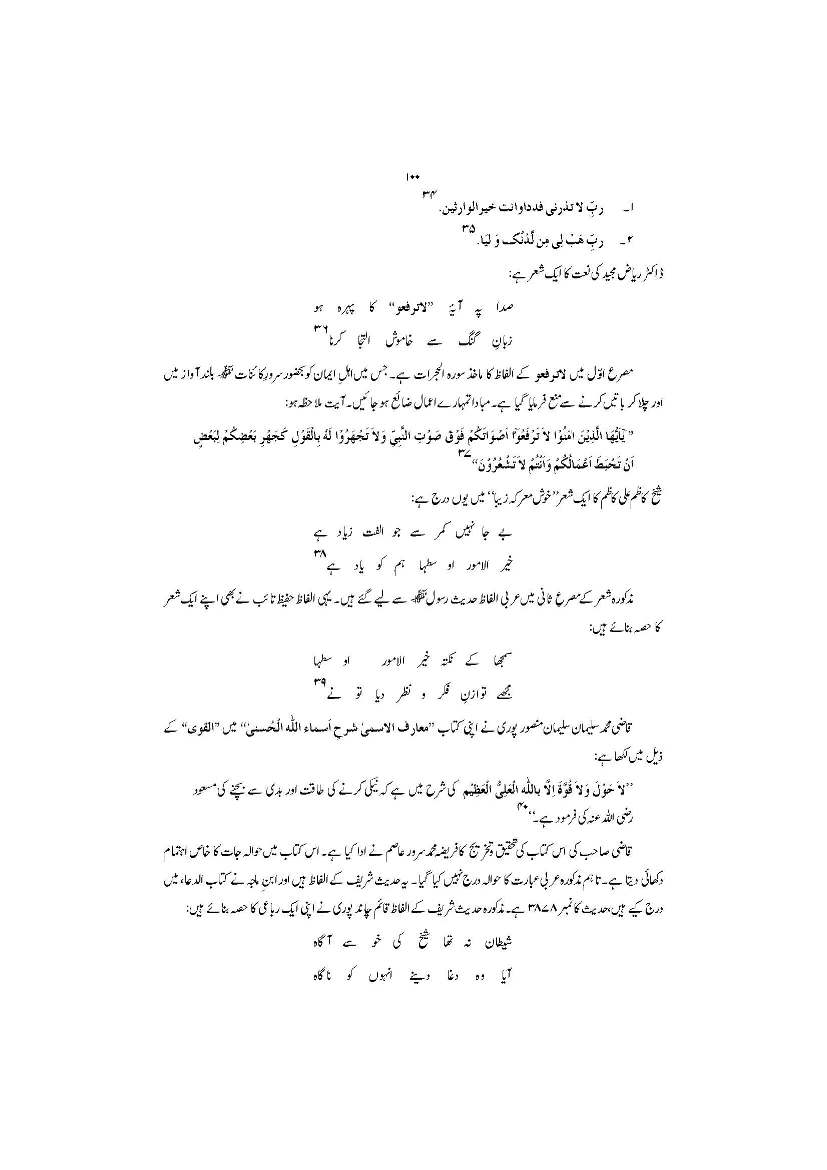 ۱۰۰
۱۔ ربِّ لا تذرنی فدداوانت خیر الوارثین۔۳۴
۲۔ ربِّ هَبْ لِی مِن لَّدُنْکَ وَ لیَا۔۳۵
ڈاکٹر ریاض مجید کی نعت کا ایک شعر ہے:
صدا پہ آیۂ ’’لاترفعو‘‘ کا پہرہ ہو
زبانِ گنگ سے خاموش التجا کرنا۳۶
مصرع اوّل میں لاترفعو کے الفاظ کا ماخذ سورہ الحجرات ہے۔ جس میں اہلِ ایمان کو بحضور سرورِ کائنات ﷺ بلند آواز میں
اور چلا کر باتیں کرنے سے منع فرمایا گیا ہے۔ مبادا تمہارے اعمال ضائع ہو جائیں۔ آیت ملاحظہ ہو:
’’یٰٓاَیُّهَا الَّذِیْنَ اٰمَنُوْا لاَ تَرْفَعُوْٓا اَصْوَاتَکُمْ فَوْقَ صَوْتِ النَّبِیِّ وَلاَ تَجْهَرُوْا لَهٗ بِالْقَوْلِ کَجَهْرِ بَعْضِکُمْ لِبَعْضٍ
اَنْ تَحْبَطَ اَعْمَالُکُمْ وَاَنْتُمْ لاَ تَشْعُرُوْنَ‘‘۳۷
شیخ کاظم علی کاظم کا ایک شعر ’’خوش معرکہ زیبا‘‘ میں یوں درج ہے:
بے جا نہیں کمر سے جو الفت زیاد ہے
خیر الامور او سطہا ہم کو یاد ہے۳۸
مذکورہ شعر کے مصرعِ ثانی میں عربی الفاظ حدیث رسول ﷺ سے لیے گئے ہیں۔ یہی الفاظ حفیظ تائب نے بھی اپنے ایک شعر
کا حصہ بنائے ہیں:
سمجھا کے نکتہ خیر الامور او سطہا
مجھے توازنِ فکر و نظر دیا تو نے۳۹
قاضی محمد سلیمان سلیمان منصور پوری نے اپنی کتاب ’’معارف الاسمیٰ شرح أسماء اللّٰہ الحُسنیٰ‘‘ میں ’’القوی‘‘ کے
ذیل میں لکھا ہے:
’’لاَ حَوْلَ وَلاَ قُوَّةَ اِلَّا بِاللّٰه الْعَلِیُّ الْعَظِیْم کی شرح میں ہے کہ نیکی کرنے کی طاقت اور بدی سے بچنے کی مسعود
رضی اللہ عنہ کی فرمود ہے۔‘‘۴۰
قاضی صاحب کی اس کتاب کی تحقیق و تخریج کا فریضہ محمد سرور عاصم نے ادا کیا ہے۔ اس کتاب میں حوالہ جات کا خاص اہتمام
دکھائی دیتا ہے۔ تاہم مذکورہ عربی عبارت کا حوالہ درج نہیں کیا گیا۔ یہ حدیث شریف کے الفاظ ہیں اور ابنِ ماجہ نے کتاب الدعاء میں
درج کیے ہیں، حدیث کا نمبر ۳۸۷۸ ہے۔ مذکورہ حدیث شریف کے الفاظ قائم چاند پوری نے اپنی ایک رباعی کا حصہ بنائے ہیں:
شیطان نہ تھا شیخ کی خو سے آگاہ
آیا وہ دغا دینے انہوں کو ناگاہ